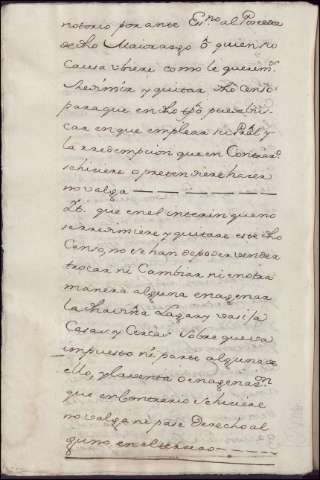 notorio por ante Esno al Poseedor
de dho Maiorazgo ô quien su
Causa ubiere como le querim.
Redimir y quitar dho Censo
para que en dho tpô pueda bus
car en que emplear su Pral y
la rredempcion que en Contrario
se hiciere o pretendiere hacer
no valga
Yt. que en el interin que no
se rredimiere y quitare este dho
Censo, no se han de poder vender
trocar ni Cambiar ni en otra
manera alguna enagenar
la dha viña Lagar y vasija
Casas y Cerca sobre que va
impuesto ni parte alguna de
ello, y la venta o enagenazon
que en Contrario se hiciere
no valga ni pase Derecho al
guno en el tercero